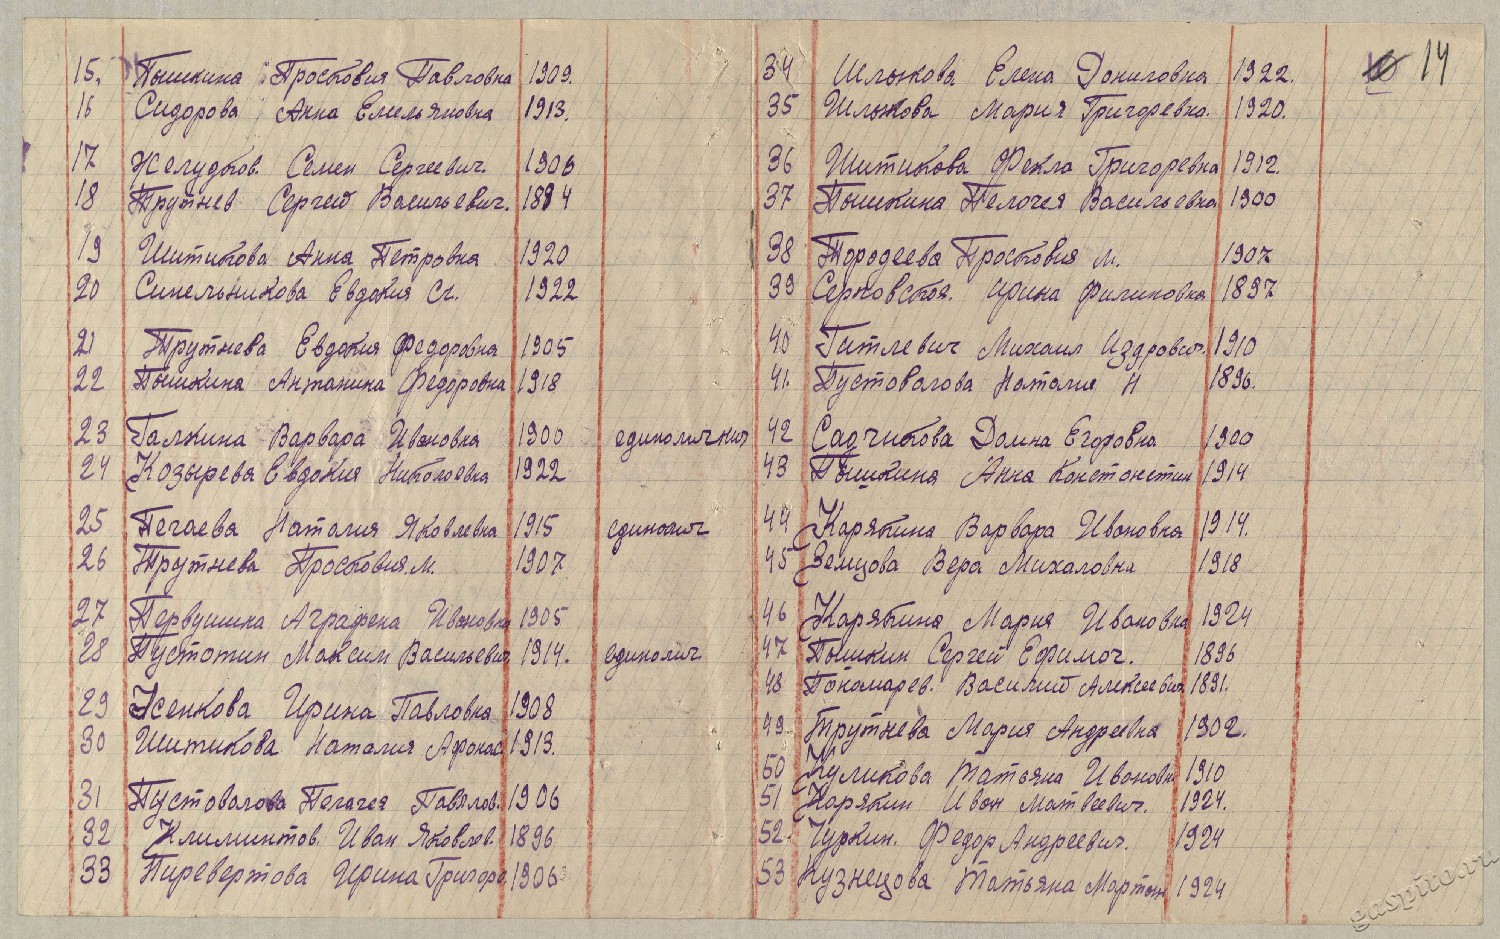 15. Пышкина Просковия Павловна 1909.
16 Сидорова Анна Емельяновна 1913.
17 Желудков. Семен Сергеевич. 1906
18 Трутнев Сергей Васильевич. 1884
19 Шитикова Анна Петровна 1920
20 Синельникова Евдокия С. 1922
21 Трутнева Евдокия Федоровна 1905
22 Пышкина Антанина Федоровна 1918
23 Галкина Варвара Ивановна 1900 единоличниц
24 Козырева Евдокия Николаевна 1922
25 Печаева Наталия Яковлевна 1915 единолич
26 Трутнева Просковия. М. 1907
27 Первушина Аграфена Ивановна 1905
28 Пустотин Максим Васильевич 1914. единолич
29 Усенкова Ирина Павловна 1908
30 Шитикова Наталия Афонас 1913.
31 Пустовалова Пегачея Павлов. 1906
32 Климинтов. Иван Яковлев. 1896
33 Пиревертова Ирина Григоре 1906
34 Шлыкова Елена Даниловна 1922.
35 Шлыкова Мария Григоревна. 1920.
36 Шитикова Фекла Григоревна 1912.
37 Пышкина Пелочея Васильевна 1900
38 Тородеева Просковия М. 1907
39 Серковская. Ирина Филиповна 1897
40 Гитлевич Михаил Издрович. 1910
41. Пустовалова Наталия Н 1896.
42 Садчикова Домна Егоровна 1900
43 Пышкина Анна Констонстин 1914
44 Карякина Варвара Ивановна 1914.
45 Земцова Вера Михаловна 1918
46 Карякина Мария Ивановна 1924
47 Пышкин Сергей Ефимоч. 1896
48 Пономарев. Василий Алексеевич 1891.
49. Трутнева Мария Андреевна 1902.
50 Куликова Татьяна Ивановн 1910
51 Карякин Иван Матвеевич. 1924.
52. Чуркин. Федор Андреевич. 1924
53 Кузнецова Татьяна Мартын 1924
14
gaspito.ru